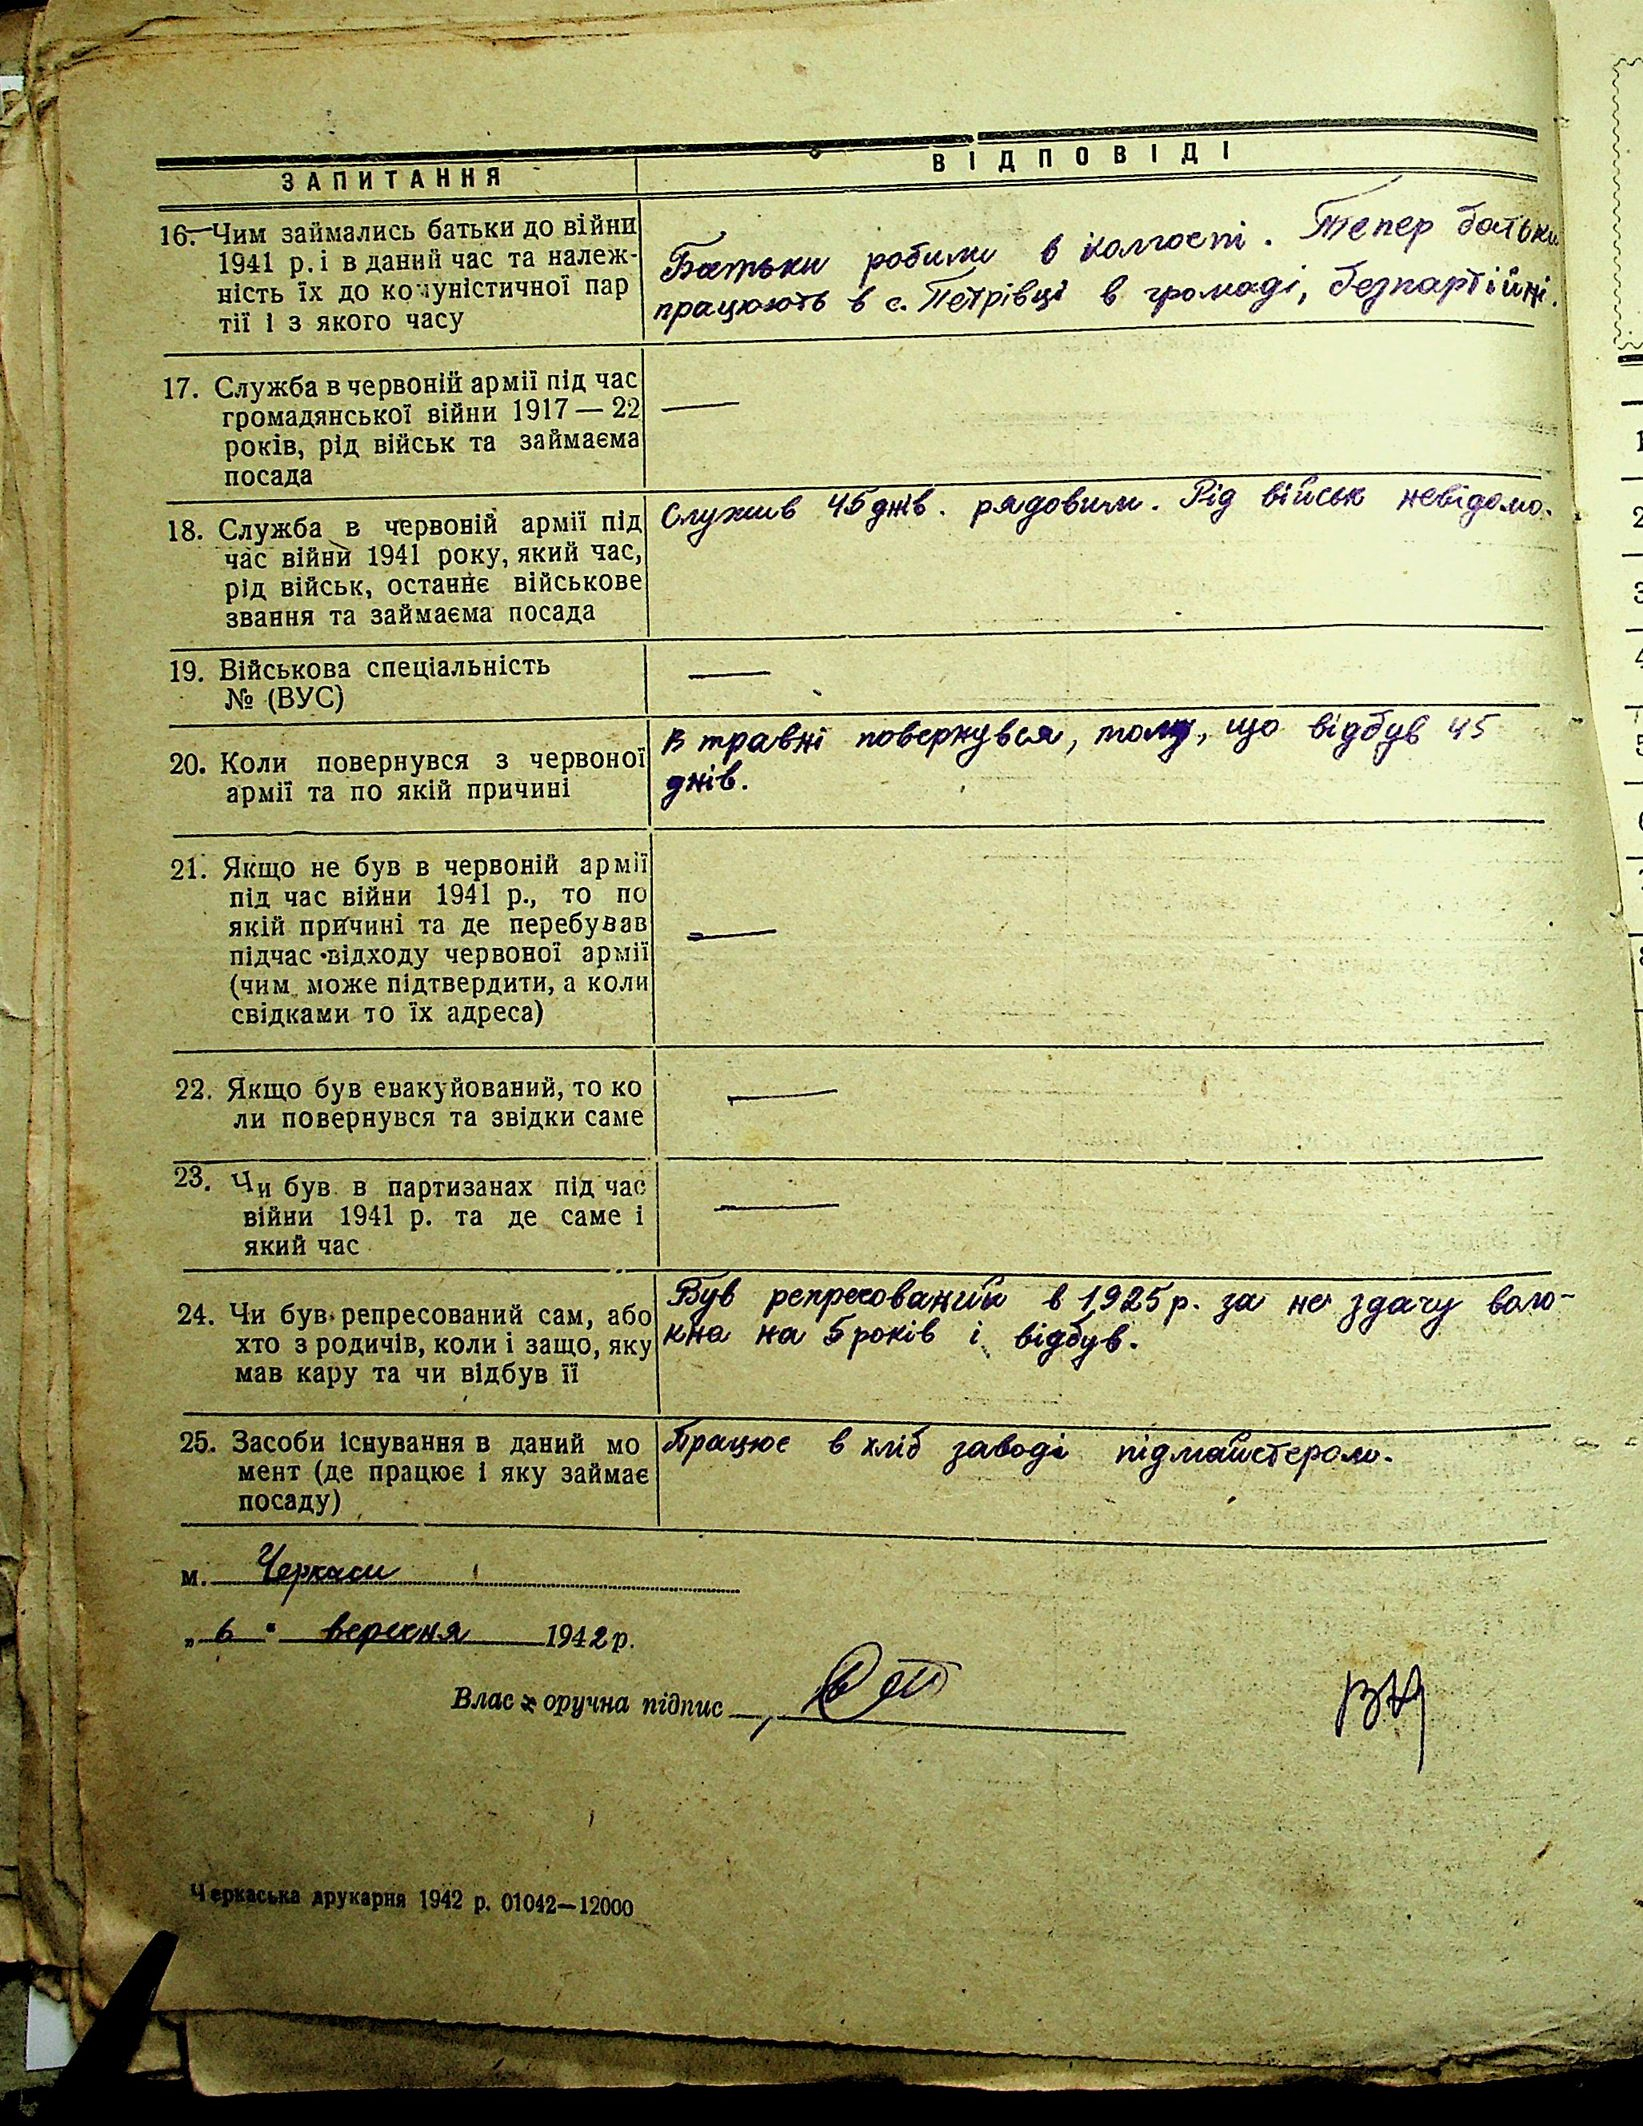 ЗАПИТАННЯ
ВІДПОВІДІ
16. Чим займались батьки до війни
1941 р. і в даний час та належ-
ність їх до комуністичної пар
тії і з якого часу
Батьки робили в колгоспі. Тепер батьки
працюють в с. Петрівці в громаді, безпартійні.
17. Служба в червоній армії під час
громадянської війни 1917 — 22
років, рід військ та займаєма
посада
—
18. Служба в червоній армії під
час війни 1941 року, який час,
рід військ, останнє військове
звання та займаєма посада
Служив 45 днів. рядовим. Рід військ невідомо.
19. Військова спеціальність
№ (ВУС)
—
20. Коли повернувся з червоної
армії та по якій причині
В травні повернувся, тому, що відбув 45
днів.
21. Якщо не був в червоній армії
під час війни 1941 р., то по
якій причині та де перебував
підчас відходу червоної армії
(чим може підтвердити, а коли
свідками то їх адреса)
—
22. Якщо був евакуйований, то ко
ли повернувся та звідки саме
—
23. Чи був в партизанах під час
війни 1941 р. та де саме і
який час
—
24. Чи був репресований сам, або
хто з родичів, коли і защо, яку
мав кару та чи відбув її
Був репресований в 1925 р. за не здачу воло-
кна на 5 років і відбув.
25. Засоби існування в даний мо
мент (де працює і яку займає
посаду)
Працює в хліб заводі підмайстером.
м. Черкаси
„ 6 " вересня 1942 р.
Влас оручна підпис
Черкаська друкарня 1942 р. 01042—12000